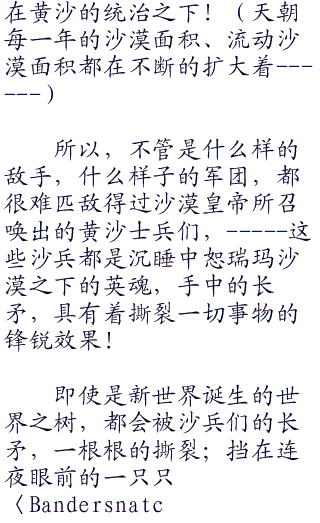 在黄沙的统治之下！（天朝
每一年的沙漠面积、流动沙
漠面积都在不断的扩大着---
---）
所以，不管是什么样的
敌手，什么样子的军团，都
很难匹敌得过沙漠皇帝所召
唤出的黄沙士兵们，-----这
些沙兵都是沉睡中恕瑞玛沙
漠之下的英魂，手中的长
矛，具有着撕裂一切事物的
锋锐效果！
即使是新世界诞生的世
界之树，都会被沙兵们的长
矛，一根根的撕裂；挡在连
夜眼前的一只只
〈Bandersnatc